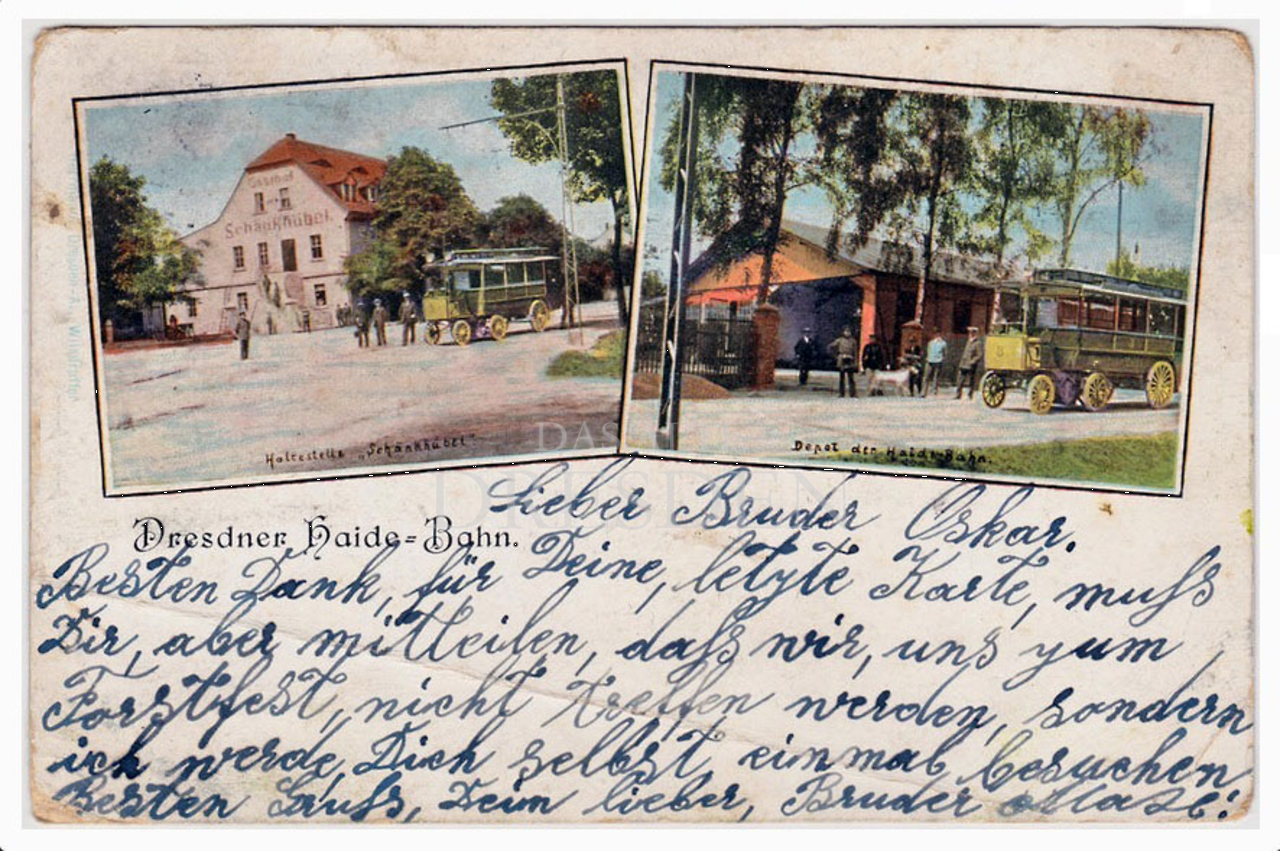 Gasthof
Schänkhübel.
Haltestelle „Schänkhübel"
Depot der Haide-Bahn.
Dresdner Haide-Bahn.
Lieber Bruder Oskar.
Besten Dank, für Deine, letzte Karte, muß
Dir, aber mitteilen, daß wir, uns zum
Forstfest, nicht treffen werden, sondern
ich werde, Dich selbst einmal besuchen
Besten Gruß, Dein lieber, Bruder